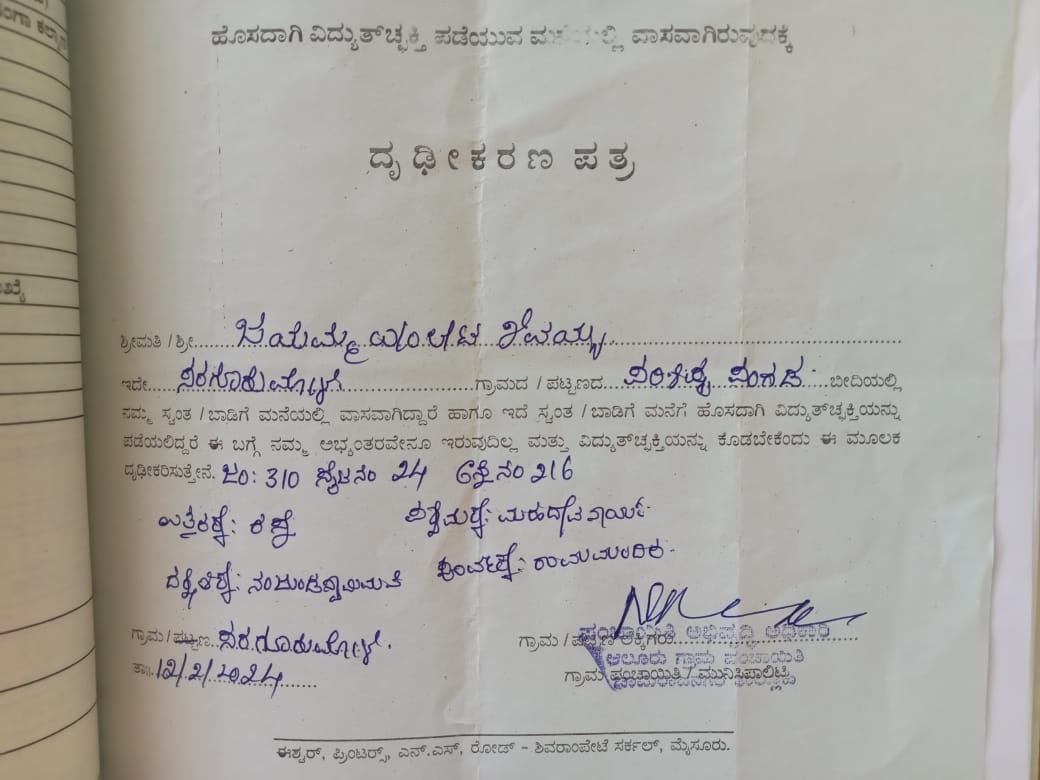 ಂಗಾ ಕಲ್ಯಾಣ
ಖ್ಯೆ
ಹೊಸದಾಗಿ ವಿದ್ಯುತ್‌ಚ್ಛಕ್ತಿ ಪಡೆಯುವ ವಾಸವಾಗಿರುವುದಕ್ಕೆ
ದೃಢೀಕರಣ ಪತ್ರ
ಶ್ರೀಮತಿ / ಶ್ರೀ ಜಯಮ್ಮ
ಇದೇ ಸರಗೂರುಮೋಳೆ ಗ್ರಾಮದ / ಪಟ್ಟಣದ ಬೀದಿಯಲ್ಲಿ
ನಮ್ಮ ಸ್ವಂತ / ಬಾಡಿಗೆ ಮನೆಯಲ್ಲಿ ವಾಸವಾಗಿದ್ದಾರೆ ಹಾಗೂ ಇದೆ ಸ್ವಂತ / ಬಾಡಿಗೆ ಮನೆಗೆ ಹೊಸದಾಗಿ ವಿದ್ಯುತ್‌ಚ್ಛಕ್ತಿಯನ್ನು
ಪಡೆಯಲಿದ್ದರೆ ಈ ಬಗ್ಗೆ ನಮ್ಮ ಅಭ್ಯಂತರವೇನೂ ಇರುವುದಿಲ್ಲ ಮತ್ತು ವಿದ್ಯುತ್‌ಚ್ಛಕ್ತಿಯನ್ನು ಕೊಡಬೇಕೆಂದು ಈ ಮೂಲಕ
ದೃಢೀಕರಿಸುತ್ತೇನೆ. ಜಂ: 310 24 216
ಉತ್ತರಕ್ಕೆ: ರಸ್ತೆ ಪಶ್ಚಿಮಕ್ಕೆ: ಮಹದೇವ ನಾಯ್ಕ
ದಕ್ಷಿಣಕ್ಕೆ: ಪೂರ್ವಕ್ಕೆ: ರಾಮಮಂದಿರ.
ಗ್ರಾಮ / ಪಟ್ಟಣ ಸರಗೂರುಮೋಳೆ. ಗ್ರಾಮ / ಪಟ್ಟಣ
ಪಂಚಾಯಿತಿ ಅಭಿವೃದ್ಧಿ ಅಧಿಕಾರಿ
ಆಲೂರು ಗ್ರಾಮ ಪಂಚಾಯಿತಿ
ತಾ॥ 12/2/2024 ಗ್ರಾಮ ಪಂಚಾಯಿತಿ / ಮುನಿಸಿಪಾಲಿಟಿ
ಈಶ್ವರ್, ಪ್ರಿಂಟರ್ಸ್, ಎನ್.ಎಸ್, ರೋಡ್ - ಶಿವರಾಂಪೇಟೆ ಸರ್ಕಲ್, ಮೈಸೂರು.